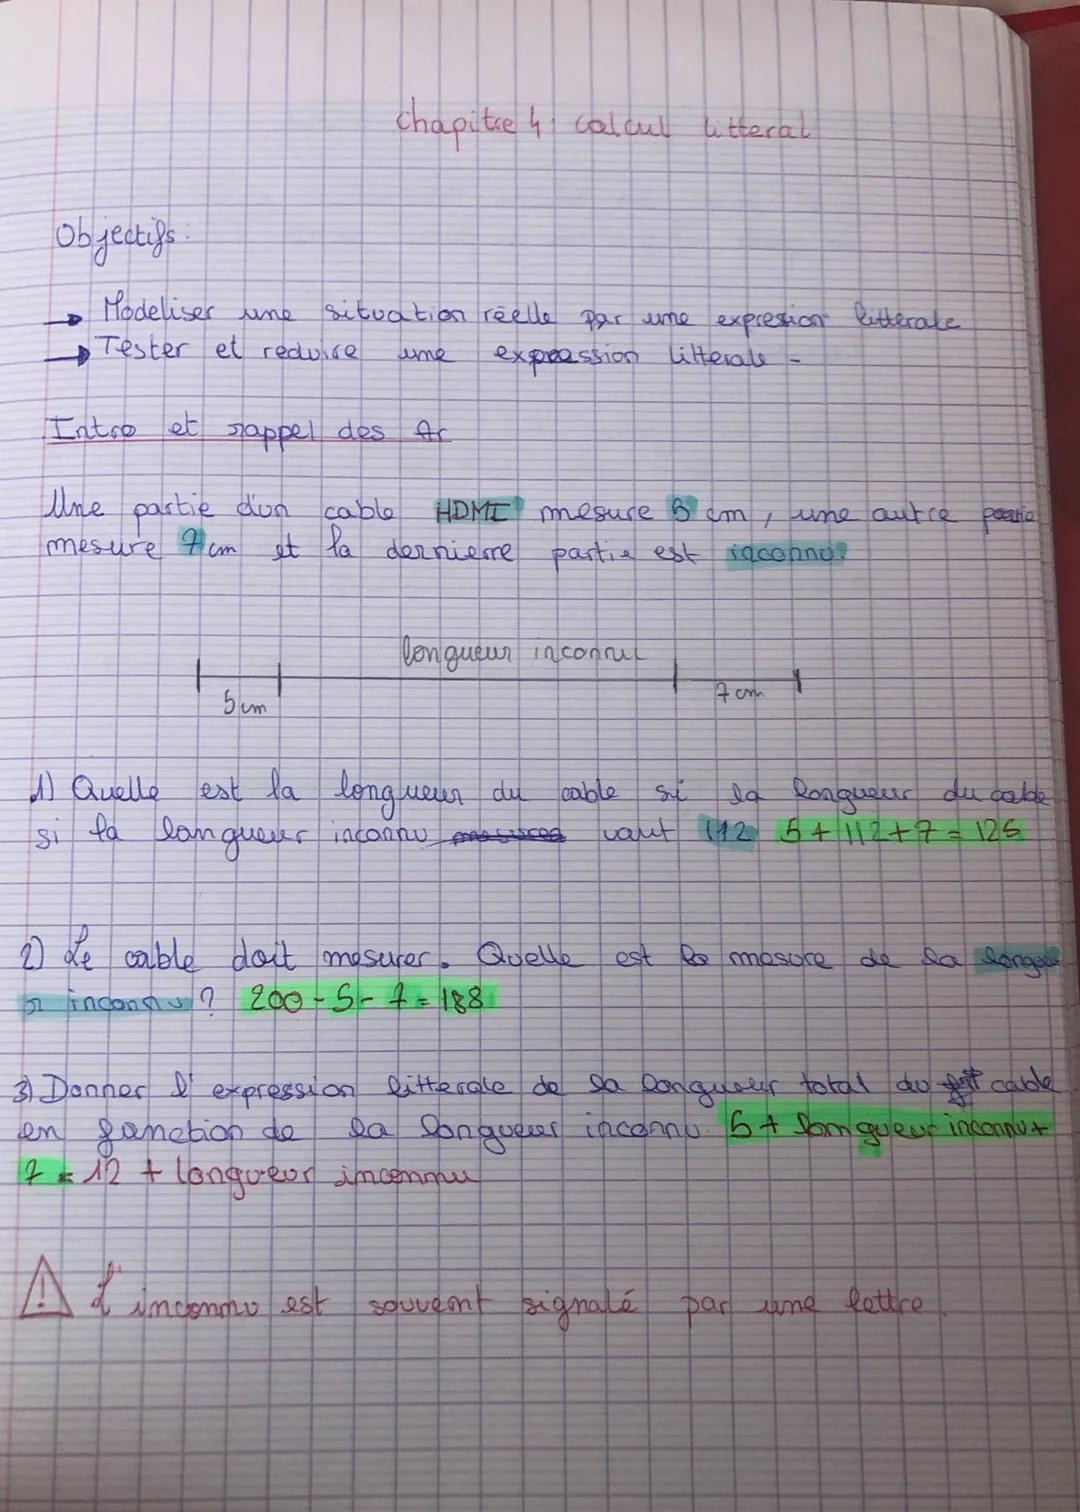 chapitre 4 : calcul litteral
Objectifs :
→ Modeliser une situation réelle par une expression litterale
→ Tester et reduire une expression litterale -
Intro et rappel des Ac
Une partie d'un cable HDMI mesure 5 cm, une autre partie
mesure 7 cm et la dernierre partie est inconnu.
longueur inconnu
5 cm
7 cm
1) Quelle est la longueur du cable si la longueur du cable
si la longueur inconnu vaut 112 5 + 112 + 7 = 125
2) Le cable doit mesurer. Quelle est la mesure de la longue
r inconnu ? 200 - 5 - 7 = 188
3) Donner l'expression litterale de la longueur total du cable
en fonction de la longueur inconnu. 5 + longueur inconnu +
7 = 12 + longueur inconnu
⚠ L'inconnu est souvent signalé par une lettre.